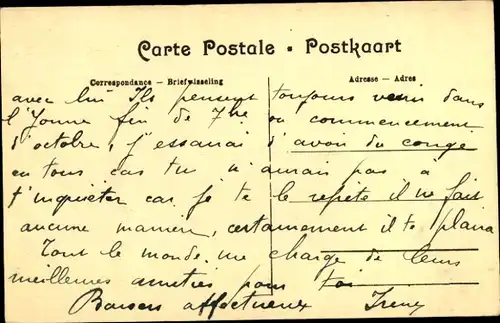 Carte Postale • Postkaart
Correspondance – Briefwisseling
Adresse – Adres
avec lui Ils pensent toujours venir dans
l'Yonne fin de 7bre ou commencement
d'octobre, j'essaierai d'avoir du congé
en tous cas tu n'aurais pas à
t'inquiéter car je te le répète il ne fait
aucune manière, certainement il te plaira
Tout le monde me charge de leurs
meilleures amitiés pour toi
Baisers affectueux